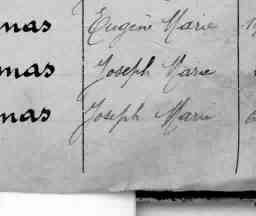 mas Eugène Marie
mas Joseph Marie
mas Joseph Marie